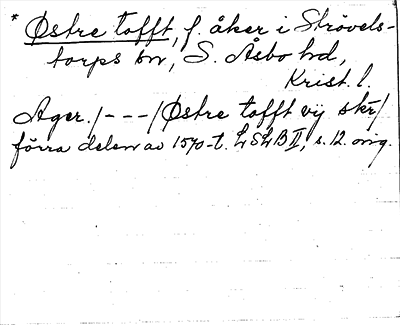 * Østre tofft, f. åker i Strövels-
torps sn, S. Åsbo hd,
Krist. l.
Ager. /---/ Østre tofft vij skr/
förra delen av 1570-t. LSLB II, s. 12. orig.